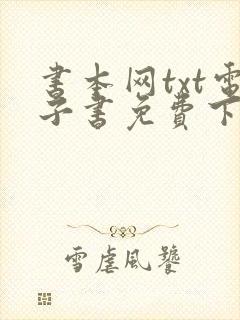 书本网txt电
子书免费下
雪虐风饕